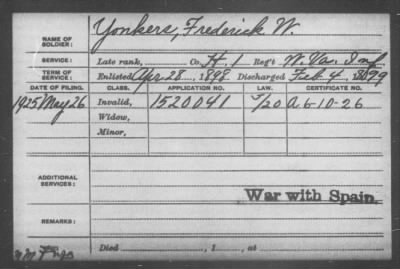 NAME OF SOLDIER: Yonkers, Frederick W.
SERVICE: Late rank, Co. H. 1 Reg't W. Va. Inf
TERM OF SERVICE: Enlisted Apr 28, 1898 Discharged Feb. 4, 1899
DATE OF FILING. CLASS. APPLICATION NO. LAW. CERTIFICATE NO.
1925 May 26 Invalid, 1520041 A 6-10-26
Widow,
Minor,
ADDITIONAL SERVICES:
War with Spain.
REMARKS:
Died , 1 , at